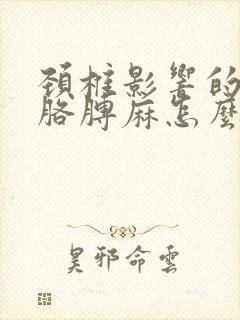 頚椎影響的
胳膊麻怎麼
昊邪命雲